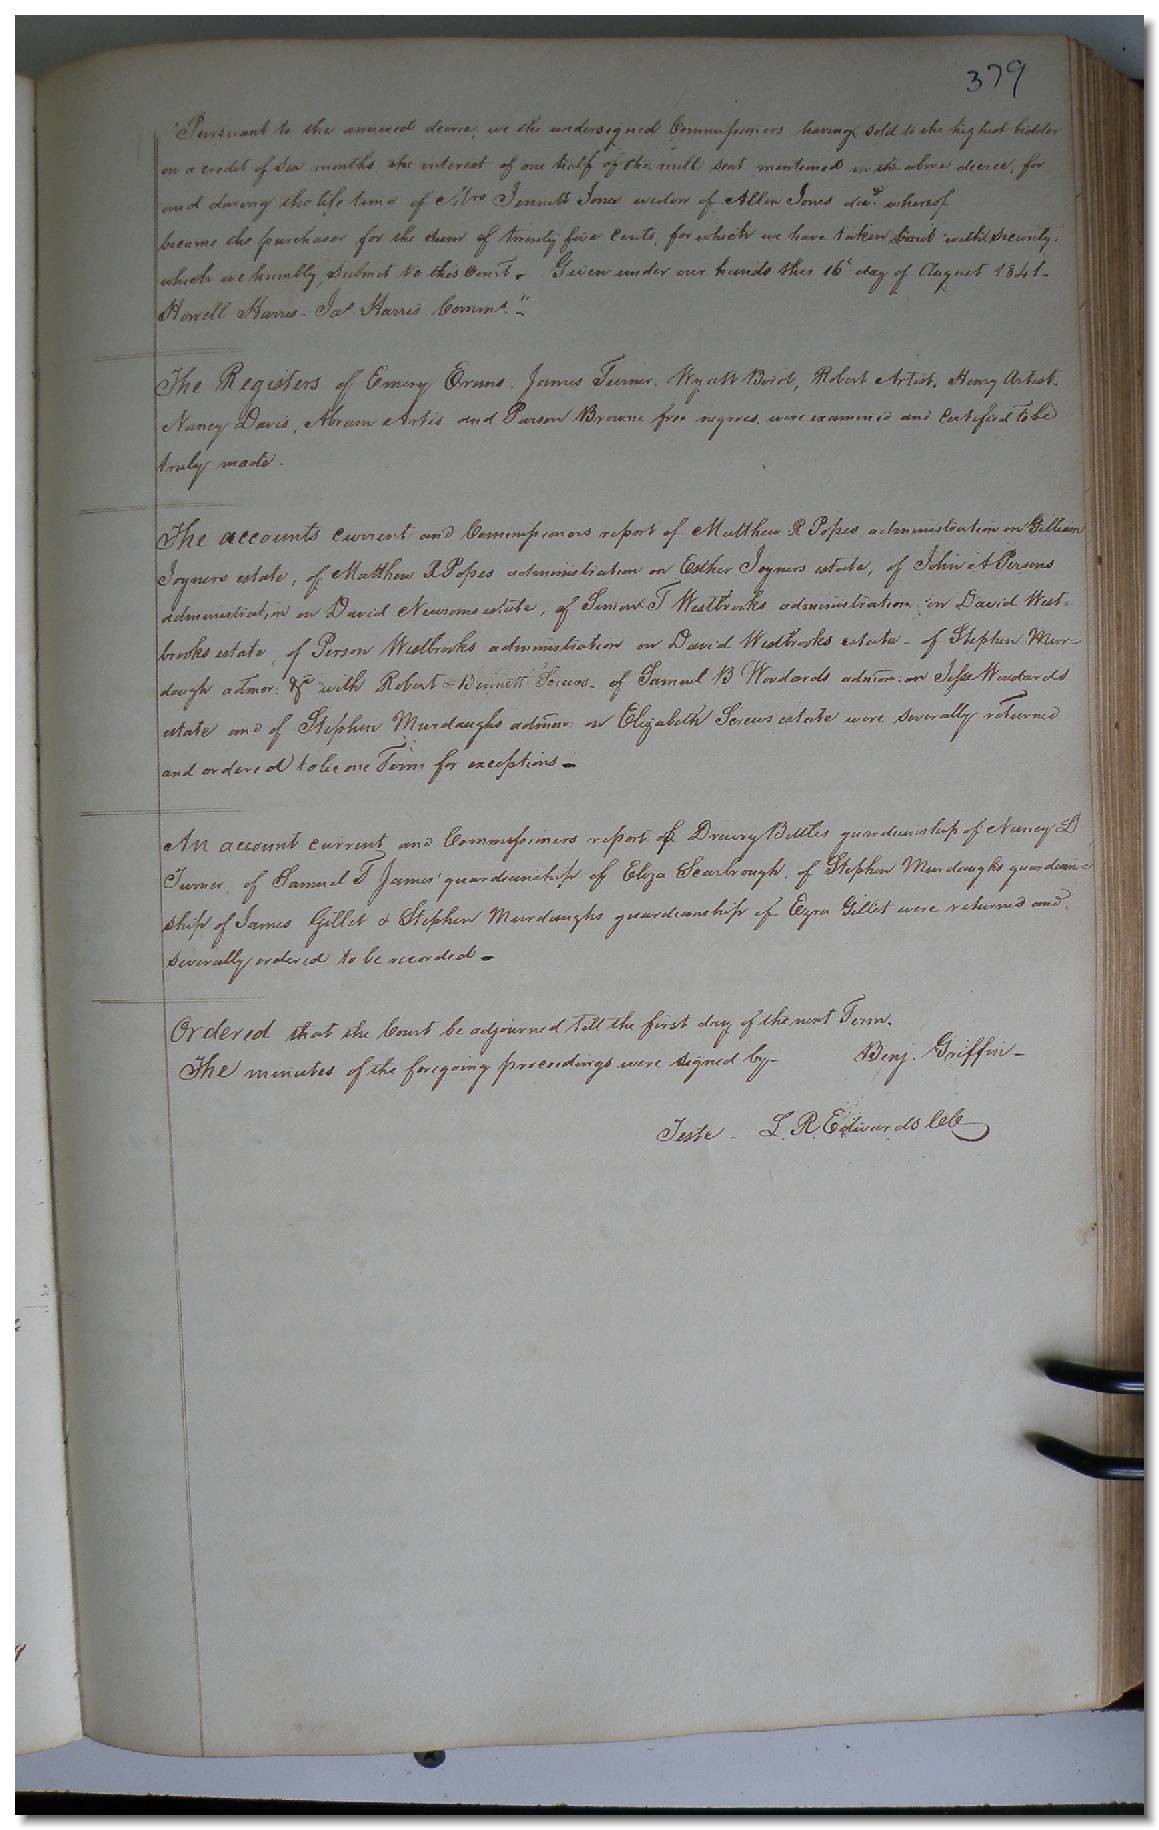 379
"Pursuant to the annexed decree, we the undersigned Commissioners having sold to the highest bidder
on a credit of six months the interest of one half of the mill seat mentioned in the above decree, for
and during the life time of Mrs Jennett Jones widow of Allen Jones decd. whereof
became the purchaser for the sum of twenty five cents, for which we have taken bond with security.
which we humbly submit to this Court - Given under our hands this 16th day of August 1841 -
Howell Harris - Jas Harris Commrs." -
The Registers of Emery Evans, James Turner, Wyatt Boid, Robert Artist, Henry Artist,
Nancy Davis, Abram Artis and Parson Browne free negroes were examined and Certified to be
truly made.
The accounts current and Commissioners report of Matthew R Popes administration on Gilliam
Joyners estate, of Matthew R Popes administration on Esther Joyners estate, of John A Persons
administration on David Newsoms estate, of Simon T Westbrooks administration on David West-
brooks estate, of Person Westbrooks administration on David Westbrooks estate - of Stephen Mur-
dough admor: &c with Robert & Bennett Screws - of Samuel B Woodards admor: on Jesse Woodards
estate and of Stephen Murdaughs admor: on Elizabeth Screws estate were severally returned
and ordered to lie one Term for exceptions -
An account current and Commissioners report of Drewry Bittles guardianship of Nancy D
Turner, of Samuel T James' guardianship of Eliza Scarbrough, of Stephen Murdaughs guardian-
ship of James Gillet & Stephen Murdaughs guardianship of Ezra Gillet were returned and
severally ordered to be recorded -
Ordered that the Court be adjourned till the first day of the next Term.
The minutes of the foregoing proceedings were signed by - Benj. Griffin -
Teste - L. R. Edwards CC